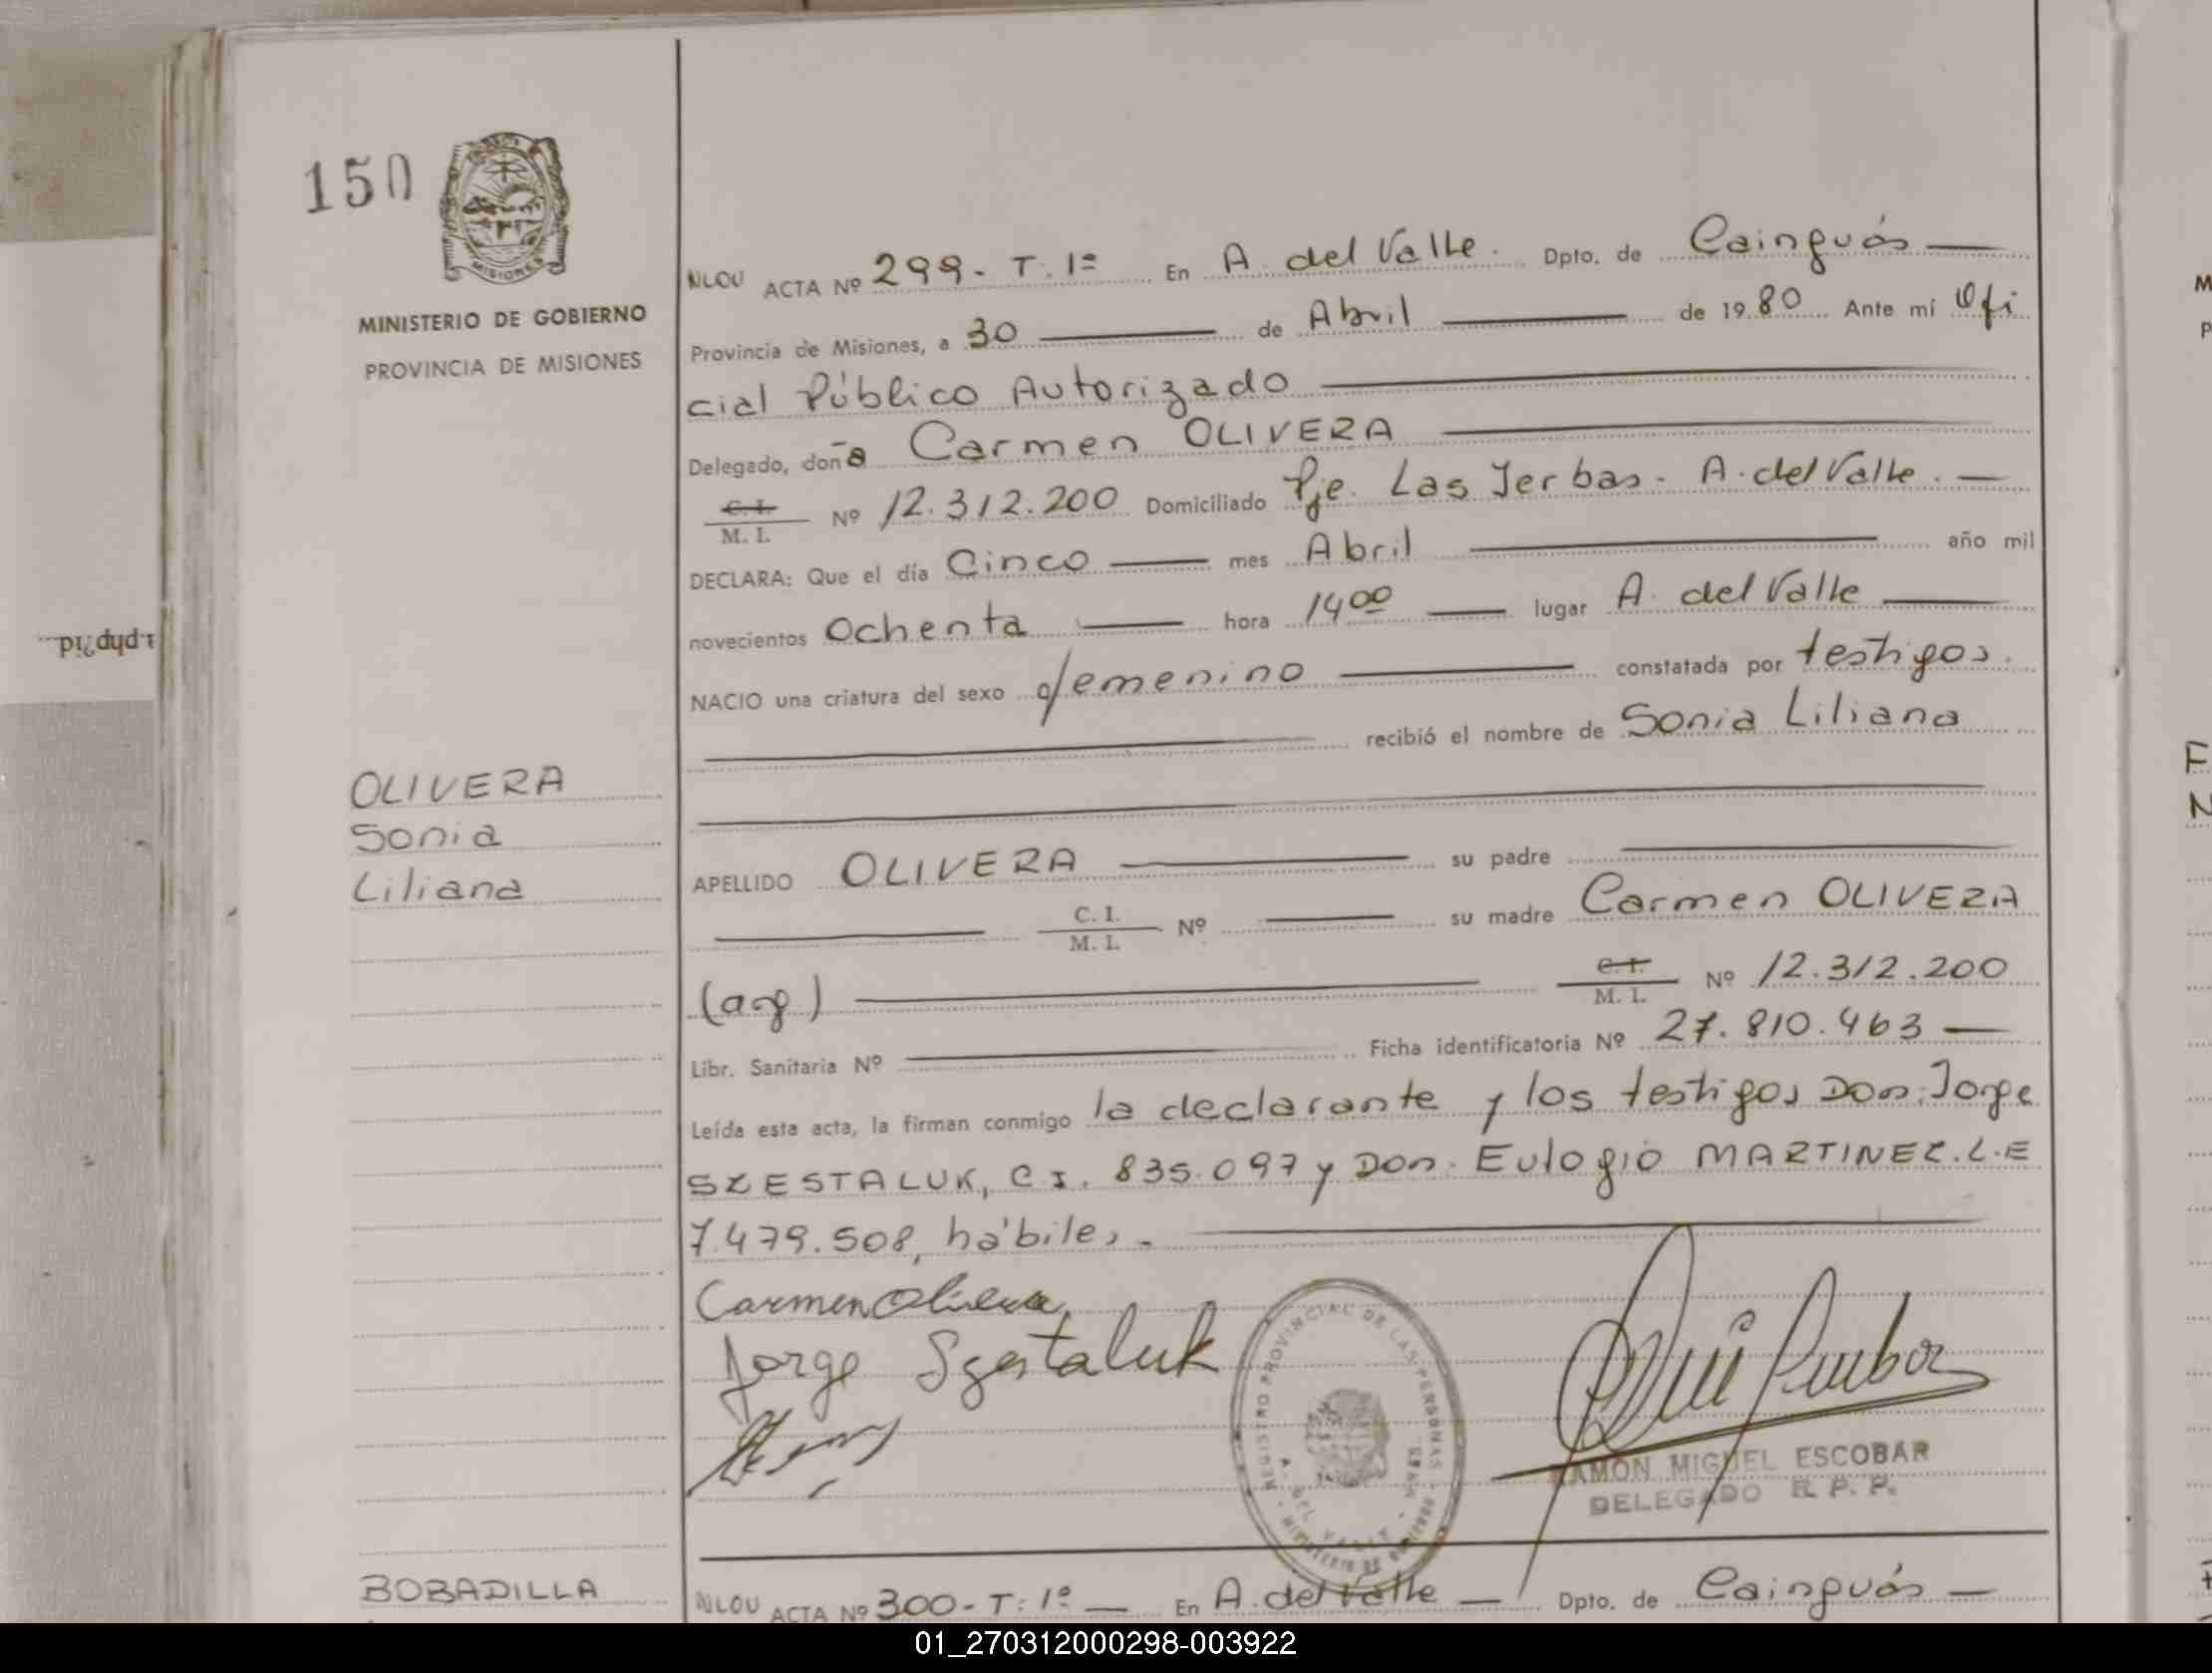 150
MINISTERIO DE GOBIERNO
PROVINCIA DE MISIONES
OLIVERA
Sonia
Liliana
ACTA Nº 299- T. 1º En A. del Valle. Dpto. de Cainguás
Provincia de Misiones, a 30 de Abril de 1980 Ante mí Ofi
cial Público Autorizado
Delegado, doña Carmen OLIVERA
C. I. / M. I. Nº 12.312.200 Domiciliado Pje. Las Yerbas - A. del Valle.
DECLARA: Que el día Cinco mes Abril año mil
novecientos Ochenta hora 14 00 lugar A. del Valle
NACIO una criatura del sexo femenino constatada por testigos.
recibió el nombre de Sonia Liliana
APELLIDO OLIVERA su padre
C. I. / M. I. Nº su madre Carmen OLIVERA
(arg) C. I. / M. I. Nº 12.312.200
Libr. Sanitaria Nº Ficha identificatoria Nº 27.810.463
Leída esta acta, la firman conmigo la declarante y los testigos Don: Jorge
SZESTALUK, C.I. 835.097 y Don. Eulogio MARTINEZ. L.E
7.479.508, hábiles.-
Carmen Olivera
Jorge Szestaluk
REGISTRO PROVINCIAL DE LAS PERSONAS
A. DEL VALLE
MINISTERIO DE GOBIERNO
RAMON MIGUEL ESCOBAR
DELEGADO R. P. P.
BOBADILLA
ACTA Nº 300- T: 1º En A. del Valle Dpto. de Cainguás
01_270312000298-003922